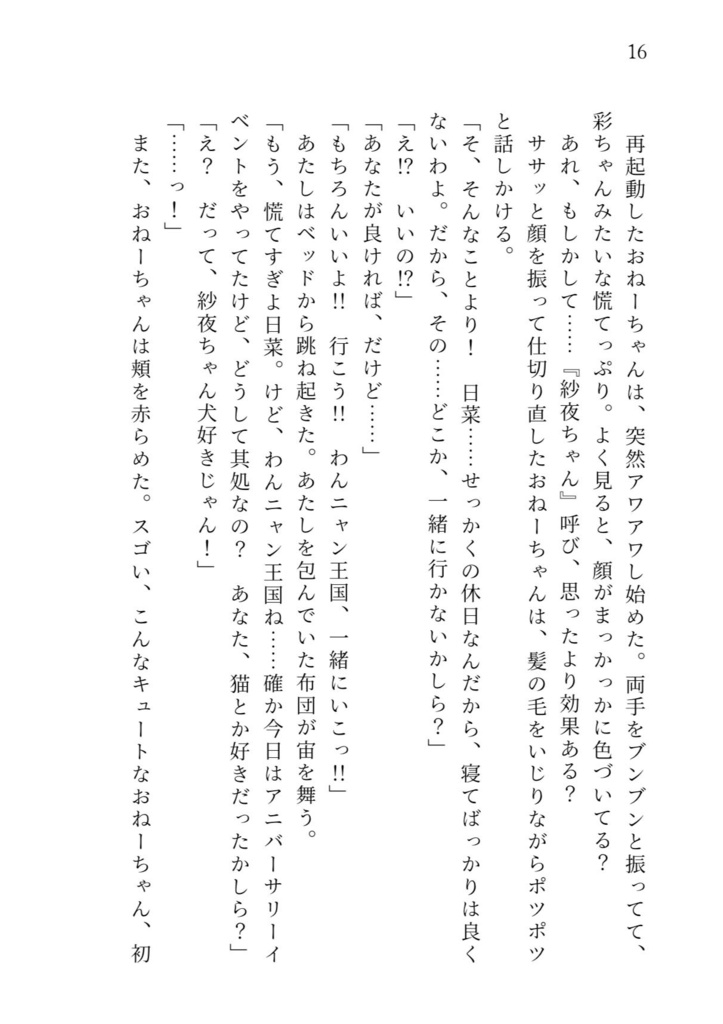 16
　再起動したおねーちゃんは、突然アワアワし始めた。両手をブンブンと振ってて、
彩ちゃんみたいな慌てっぷり。よく見ると、顔がまっかっかに色づいてる？
　あれ、もしかして……『紗夜ちゃん』呼び、思ったより効果ある？
　ササッと顔を振って仕切り直したおねーちゃんは、髪の毛をいじりながらポツポツ
と話しかける。
「そ、そんなことより！　日菜……せっかくの休日なんだから、寝てばっかりは良く
ないわよ。だから、その……どこか、一緒に行かないかしら？」
「え⁉　いいの⁉」
「あなたが良ければ、だけど……」
「もちろんいいよ‼　行こう‼　わんニャン王国、一緒にいこっ‼」
　あたしはベッドから跳ね起きた。あたしを包んでいた布団が宙を舞う。
「もう、慌てすぎよ日菜。けど、わんニャン王国ね……確か今日はアニバーサリーイ
ベントをやってたけど、どうして其処なの？　あなた、猫とか好きだったかしら？」
「え？　だって、紗夜ちゃん犬好きじゃん！」
「……っ！」
　また、おねーちゃんは頬を赤らめた。スゴい、こんなキュートなおねーちゃん、初